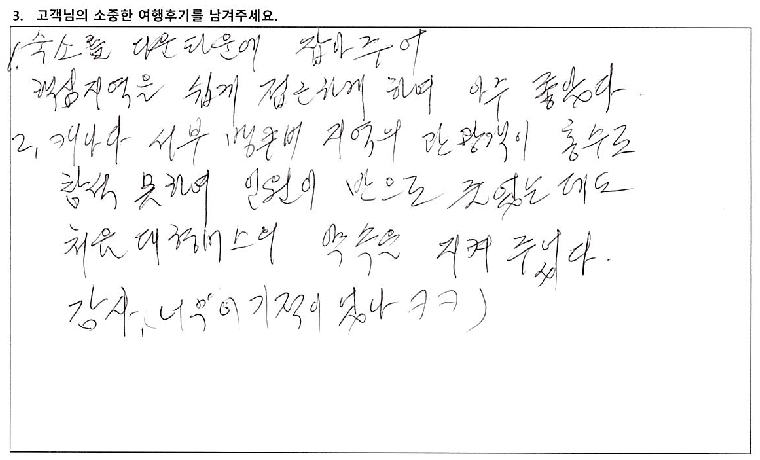 3. 고객님의 소중한 여행후기를 남겨주세요.
1. 숙소를 다운타운에 잡아주어
핵심지역을 쉽게 접근하게 하며 아주 좋았다.
2. 캐나다 서부 벵쿠버 지역의 관광객이 홍수로
참석 못하여 인원이 반으로 줄었는데도
처음 대형버스의 약속을 지켜 주었다.
감사, 너무 이기적이였나 ㅋㅋ)